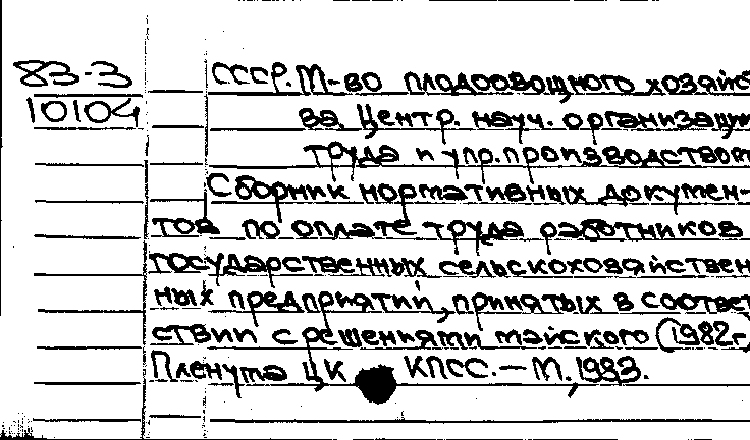 83-3
10104
СССР. М-во плодоовощного хозяйст
ва. Центр. науч. организации
труда и упр. производством
Сборник нормативных докумен-
тов по оплате труда работников
государственных сельскохозяйствен
ных предприятий, принятых в соответ
ствии с решениями майского (1982 г.)
Пленума ЦК КПСС. — М., 1983.